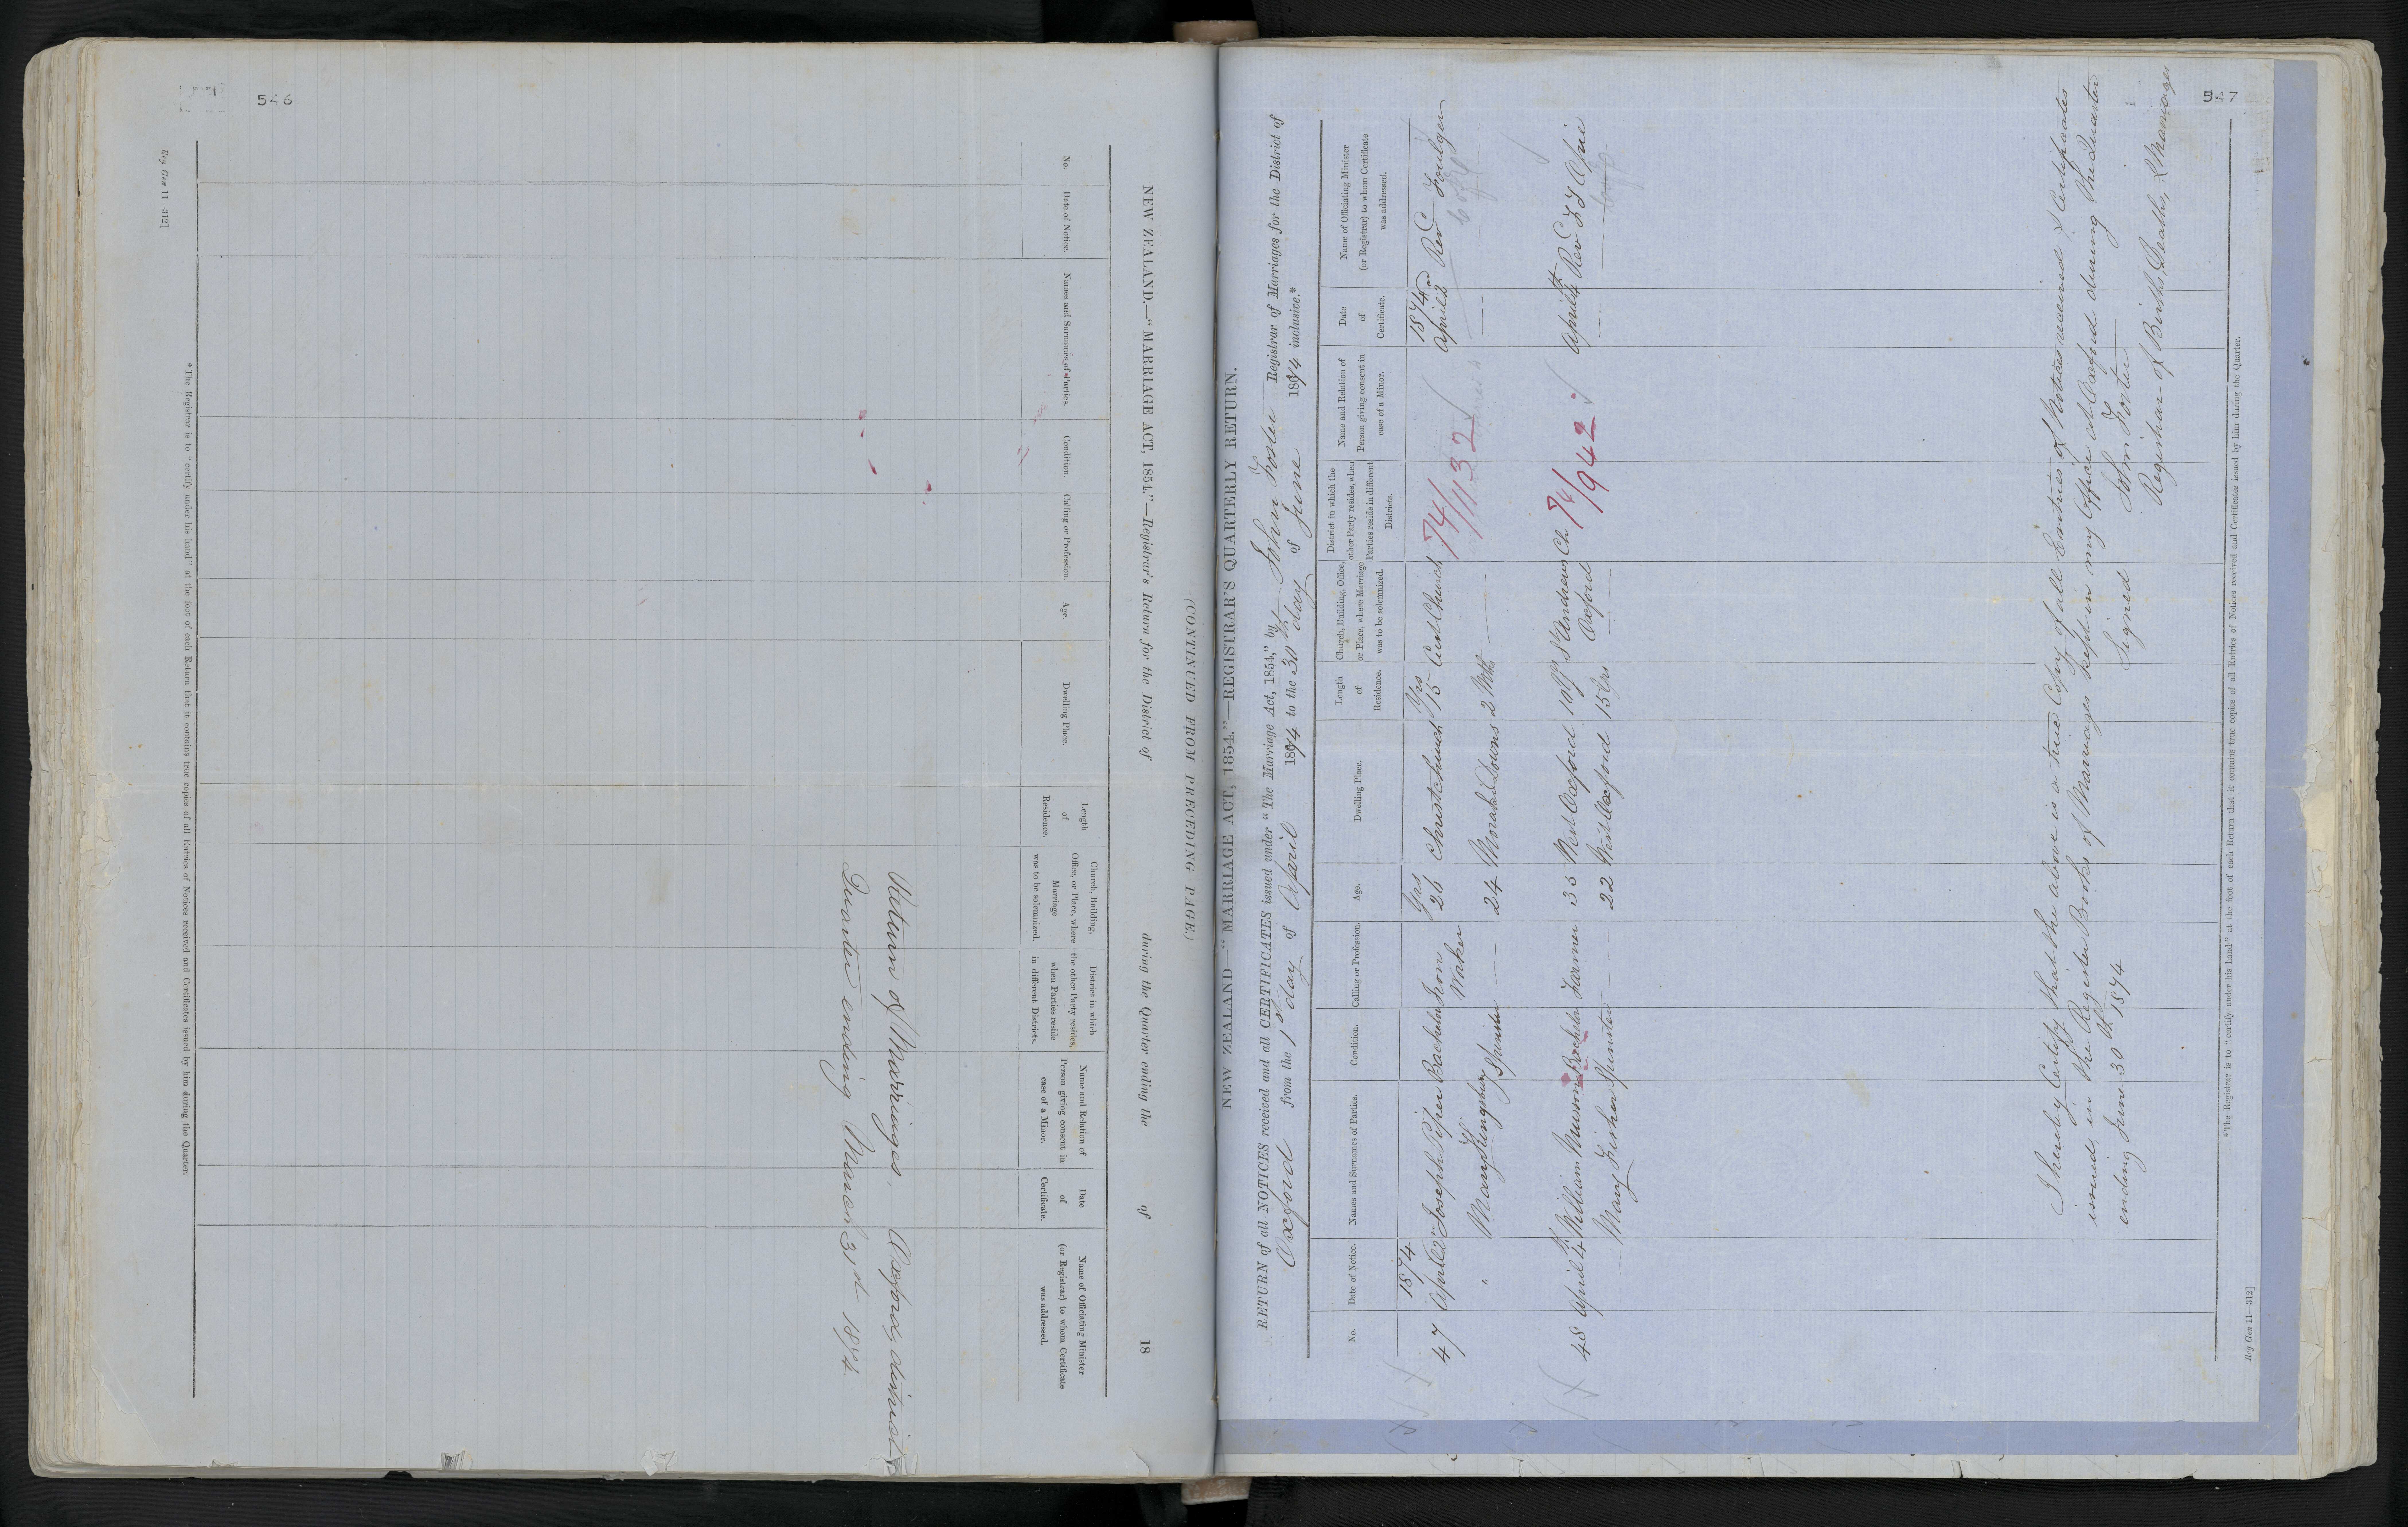 546
(CONTINUED FROM PRECEDING PAGE.)
NEW ZEALAND.—"MARRIAGE ACT, 1854."—Registrar's Return for the District of during the Quarter ending the of 18
No.
Date of Notice.
Names and Surnames of Parties.
Condition.
Calling or Profession.
Age.
Dwelling Place.
Length of Residence.
Church, Building, Office, or Place, where Marriage was to be solemnized.
District in which the other Party resides, when Parties reside in different Districts.
Name and Relation of Person giving consent in case of a Minor.
Date of Certificate.
Name of Officiating Minister (or Registrar) to whom Certificate was addressed.
Return of Marriages, Oxford district
Quarter ending March 31st 1874
*The Registrar is to "certify under his hand" at the foot of each Return that it contains true copies of all Entries of Notices received and Certificates issued by him during the Quarter.
Reg Gen 11—312]
547
NEW ZEALAND—"MARRIAGE ACT, 1854."—REGISTRAR'S QUARTERLY RETURN.
RETURN of all NOTICES received and all CERTIFICATES issued under "The Marriage Act, 1854," by John Foster Registrar of Marriages for the District of
Oxford from the 1st day of April 1874 to the 30th day of June 1874 inclusive.*
No.
Date of Notice.
Names and Surnames of Parties.
Condition.
Calling or Profession.
Age.
Dwelling Place.
Length of Residence.
Church, Building, Office, or Place, where Marriage was to be solemnized.
District in which the other Party resides, when Parties reside in different Districts.
Name and Relation of Person giving consent in case of a Minor.
Date of Certificate.
Name of Officiating Minister (or Registrar) to whom Certificate was addressed.
1874 Yrs Yrs 1874
47 April 2nd Joseph Piper Bachelor Iron Worker 26 Christchurch 15 Cust Church 74/1132 April 2nd Rev C Foulger
" Mary Kingsbury Spinster — — 24 Moraki Downs 2 Mth —
48 April 4th William Munn Bachelor Farmer 35 West Oxford 10 Yrs St Andrews Ch Oxford 74/942 April 4th Rev
Mary Fisher Spinster — — 22 West Oxford 15 Yrs —
I hereby Certify that the above is a true Copy of all Entries of Notices received & Certificates
issued, in the Register Books of Marriages kept in my Office at Oxford during the Quarter
ending June 30th 1874 Signed John Foster
Registrar of Births, Deaths, & Marriages
*The Registrar is to "certify under his hand" at the foot of each Return that it contains true copies of all Entries of Notices received and Certificates issued by him during the Quarter.
Reg Gen 11—312]